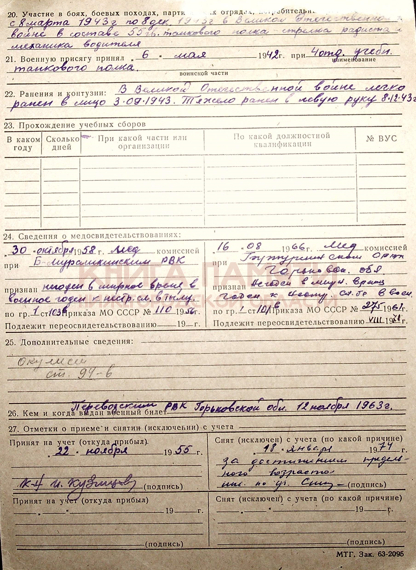 20. Участие в боях, боевых походах, парт отрядах,
с 8 марта 1943 г по 8 дек 1943 в Великой Отечественной
войне в составе 55 гв. танкового полка стрелка радиста-
механика водителя
21. Военную присягу принял 6 мая 1942 г. при 4 отд. учебн.
наименование
танкового полка.
воинской части
22. Ранения и контузии: В Великой Отечественной войне легко
ранен в лицо 3-08-1943. Тяжело ранен в левую руку 8.12.43 г
23. Прохождение учебных сборов
В каком году
Сколько дней
При какой части или организации
По какой должностной квалификации
№ ВУС
24. Сведения о медосвидетельствованиях:
30 октября 1958 г. мед комиссией
при Б-Мурашкинским РВК
признан негоден в мирное время в
военное годен к нестр. сл. в тылу.
по гр. 1 ст. 103 приказа МО СССР № 110 19 г.
Подлежит переосвидетельствованию 19 г.
16 . 08 1966 г. мед. комиссией
при
Горьковск. обл
признан Негоден в мирн. время
годен к
по гр 1 ст 10 приказа МО СССР № 275 196 г.
Подлежит переосвидетельствованию VIII 19 г.
КНИГА ПАМЯТИ
25. Дополнительные сведения:
Окулист
ст. 94-б
26. Кем и когда выдан военный билет Перевозским РВК Горьковской обл. 12 ноября 1963 г.
27. Отметки о приеме и снятии (исключении) с учета
Принят на учет (откуда прибыл)
22 . ноября 1955 г.
(подпись)
Снят (исключен) с учета (по какой причине)
18 . января 1971 г.
за достижением предель-
ного возраста
(подпись)
Принят на учет (откуда прибыл)
19 г.
(подпись)
Снят (исключен) с учета (по какой причине)
19 г.
(подпись)
МТГ. Зак. 63-2095